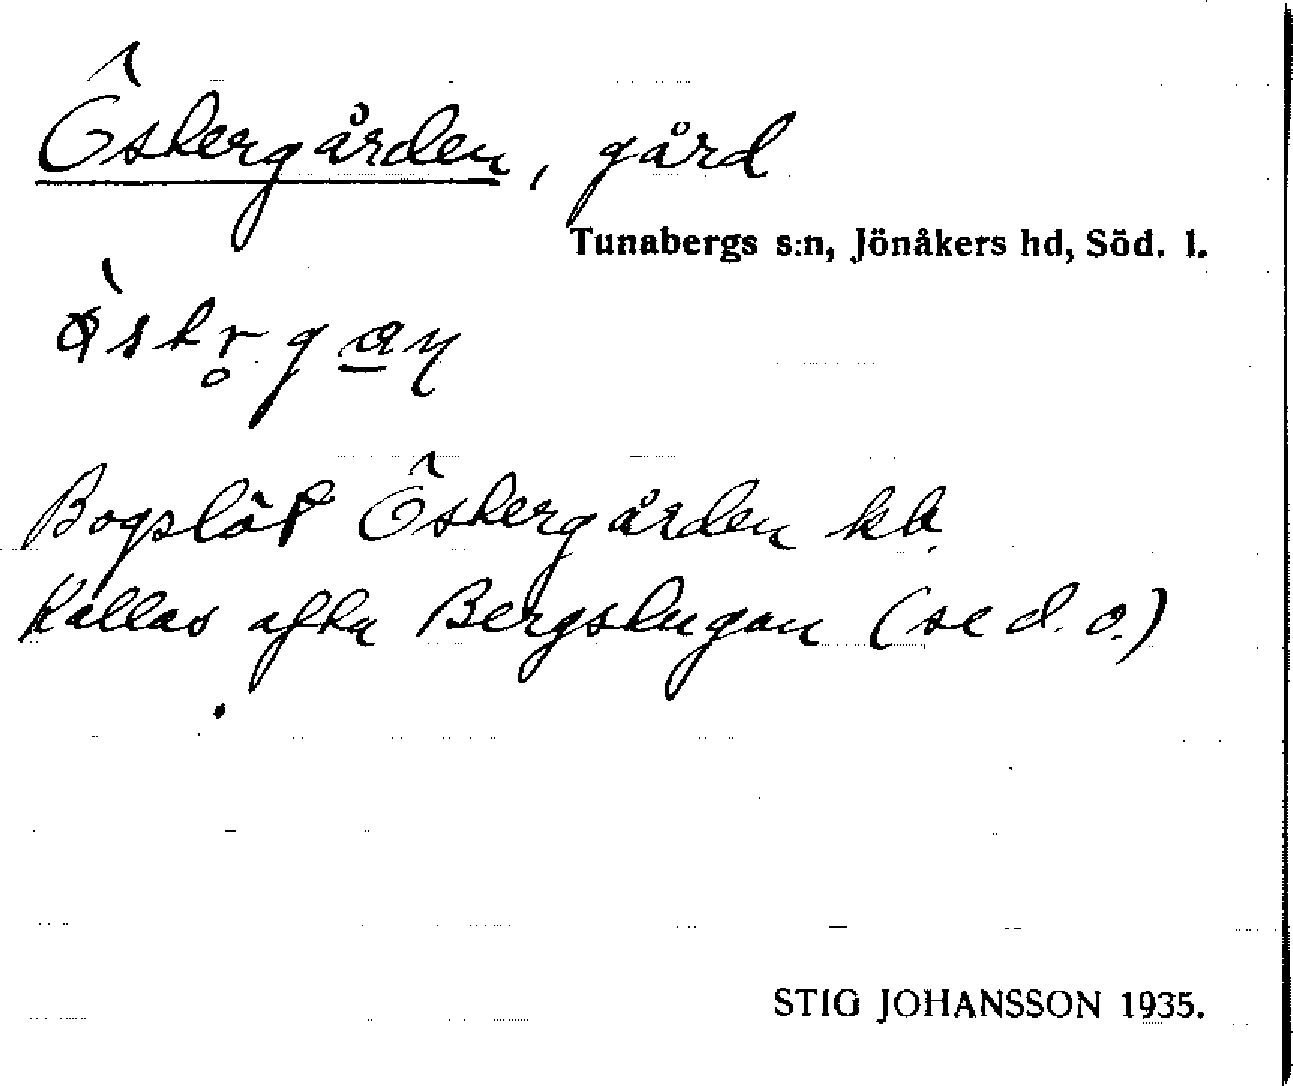 Östergården, gård
Tunabergs s:n, Jönåkers hd, Söd. l.
Östergården kb
Kallas ofta Bergstugan (se d. o.)
STIG JOHANSSON 1935.